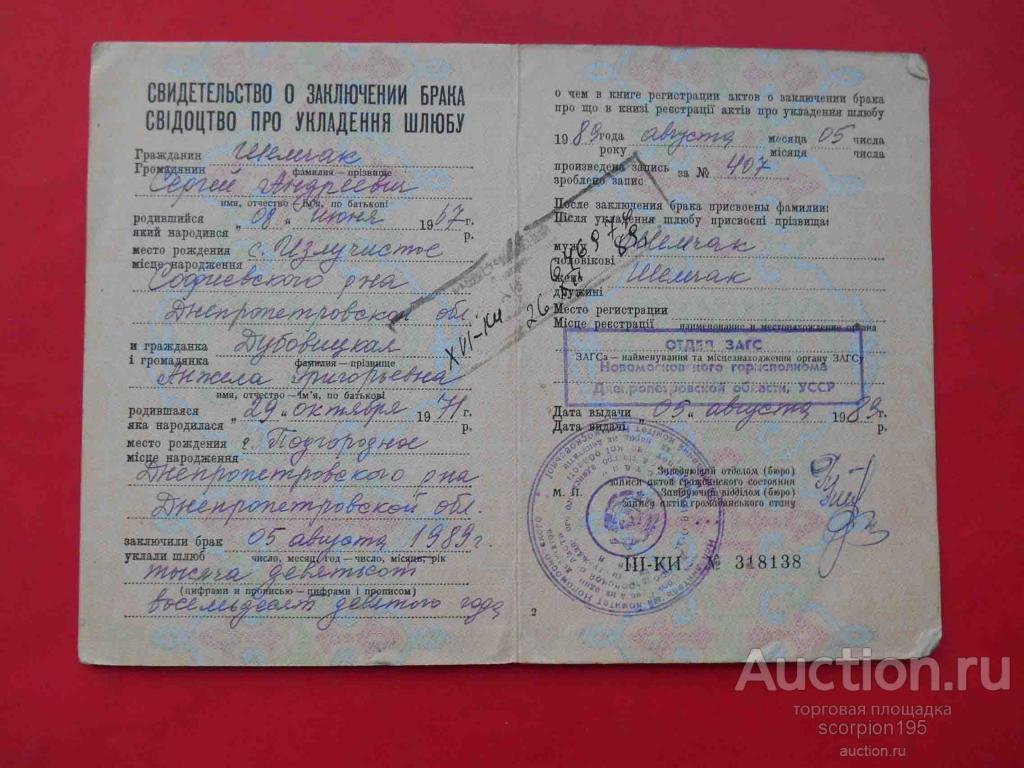 СВИДЕТЕЛЬСТВО О ЗАКЛЮЧЕНИИ БРАКА
СВІДОЦТВО ПРО УКЛАДЕННЯ ШЛЮБУ
Гражданин Шемчак
Громадянин фамилия – прізвище
Сергей Андреевич
имя, отчество – ім'я, по батькові
родившийся „09„ июня 1967г.
який народився р.
место рождения с. Излучистое
місце народження
Софиевского р-на
Днепропетровской обл.
и гражданка Дубовицкая
і громадянка фамилия – прізвище
Анжела Григорьевна
имя, отчество – ім'я, по батькові
родившаяся „29„ октября 1971г.
яка народилася р.
место рождения г. Подгородное
місце народження
Днепропетровского р-на
Днепропетровской обл.
заключили брак 05 августа 1989г.
уклали шлюб число, месяц, год – число, місяць, рік
тысяча девятьсот
(цифрами и прописью – цифрами і прописом)
восемьдесят девятого года
о чем в книге регистрации актов о заключении брака
про що в книзі реєстрації актів про укладення шлюбу
1989 года августа месяца 05 числа
року місяця числа
произведена запись за № 407
зроблено запис
После заключения брака присвоены фамилии:
Після укладення шлюбу присвоєні прізвища:
мужу Шемчак
чоловікові
жене Шемчак
дружині
XVI-КИ
Место регистрации
Місце реєстрації наименование и местонахождение органа
ОТДЕЛ ЗАГС
ЗАГСа – найменування та місцезнаходження органу ЗАГСу
Новомосковского горисполкома
Днепропетровской области, УССР
Дата выдачи „05„ августа 1989г.
Дата видачі р.
Заведующий отделом (бюро)
записи актов гражданского состояния
М. П. Завідуючий відділом (бюро)
запису актів громадянського стану
III-КИ № 318138
2
Auction.ru
торговая площадка
scorpion195
auction.ru